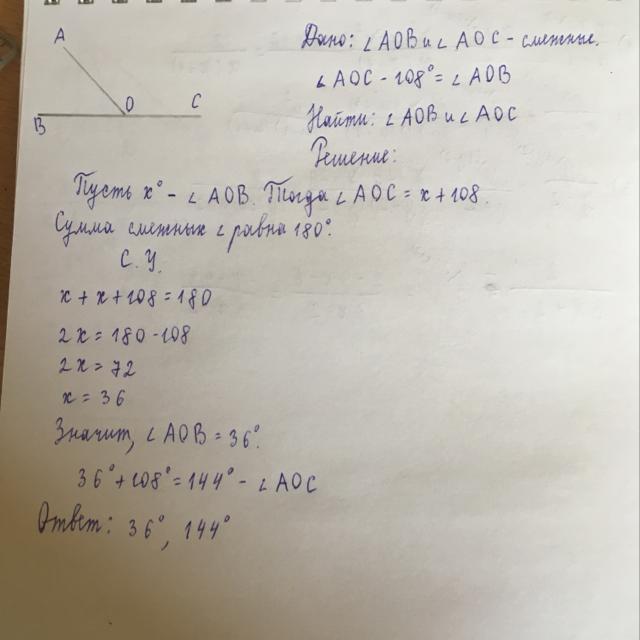 A
O
C
B
Дано: ∠AOB и ∠AOC - смежные.
∠AOC - 108° = ∠AOB
Найти: ∠AOB и ∠AOC
Решение:
Пусть x° - ∠AOB. Тогда ∠AOC = x + 108.
Сумма смежных ∠ равна 180°.
С. У.
x + x + 108 = 180
2x = 180 - 108
2x = 72
x = 36
Значит, ∠AOB = 36°.
36° + 108° = 144° - ∠AOC
Ответ: 36°, 144°